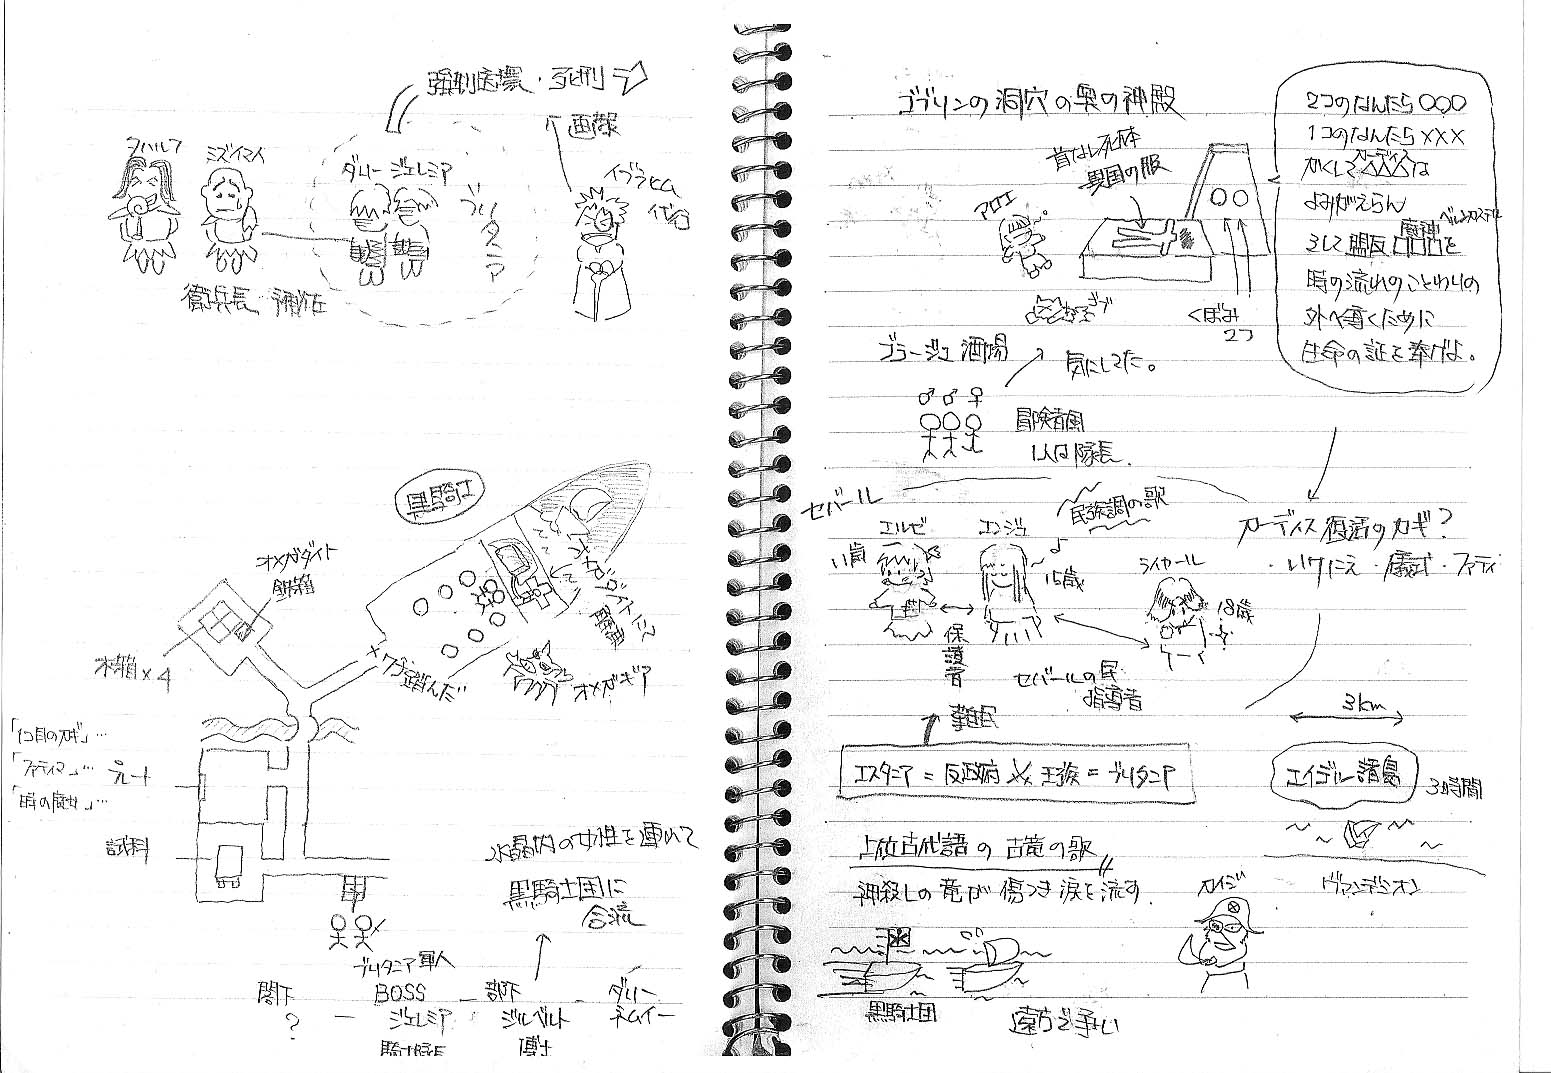 強制送還・死刑
画策
ヨハルフ
ミズイマイ
ダリー ジェレミア
ブリタニア
イブラヒム
代行
衛兵長 補佐
黒騎士
オメガダイト
鉄箱
木箱×4
ワナ踏んだ
オメガダイトにて
オメガギア
「1コ目のカギ」…
「ファティマ」…
プレート
試料
水晶内の女性を連れて
黒騎士団に
合流
ブリタニア軍人
閣下
?
BOSS
ジェレミア
騎士隊長
部下
ジルベルト
博士
ダリー
ネムイー
ゴブリンの洞穴の奥の神殿
首なし死体
異国の服
アロエ
ゴブ
くぼみ
2つ
2つのなんたら○○○
1つのなんたら×××
かくして△△△は
カーディス
よみがえらん
そして盟友□□□を
魔神
時の流れのことわりの
外へ導くために
生命の証を奉げよ。
ブラージュ 酒場
気にしてた。
♂ ♂ ♀
冒険者風
1人は隊長.
セバール
エルゼ
11歳
エンジュ
民族調の歌
♪
15歳
ライカール
18歳
保護者
セバールの民
指導者
カーディス復活のカギ?
・いけにえ・儀式・ファティ
難民
エスタニア = 反政府 × 王族 = ブリタニア
3km
エイデル諸島
3時間
上位古代語の古竜の歌
神殺しの竜が傷つき涙を流す.
カイジ
ヴァンデミオン
黒騎士団
遠方で争い